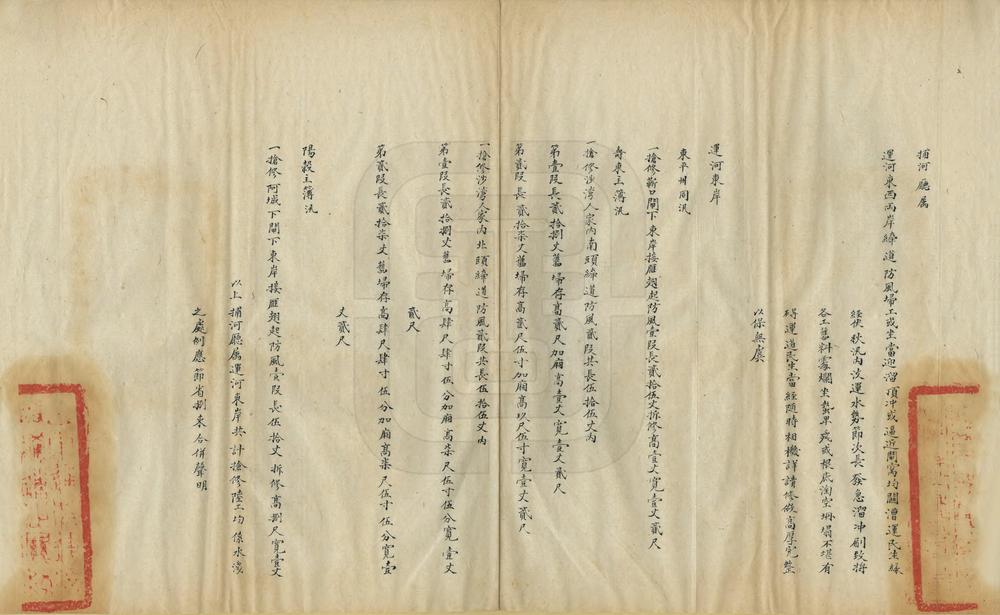 捕河廳属
運河東西両岸縴道防風埽工或坐當迎溜頂冲或逼近閘窩均關漕運民生緣
經伏秋汛内汶運水势節次長發急溜冲刷致将
各工舊料霉爛坐蟄卑矮或根底淘空坍塌不堪有
碍運道民生當經随時相機詳請修做高厚完整
以保無虞
運河東岸
東平州同汛
一搶修靳口閘下東岸接雁翅起防風壹段長貳拾伍丈拆修高壹丈寛壹丈貳尺
壽東主簿汛
一搶修沙湾人家内南頭縴道防風貳段共長伍拾伍丈内
第壹段長貳拾捌丈舊埽存髙貳尺加廂高壹丈寛壹丈貳尺
第貳段長貳拾柒丈舊埽存高貳尺伍寸加廂高玖尺伍寸寛壹丈貳尺
一搶修沙湾人家内北頭縴道防風貳段共長伍拾伍丈内
第壹段長貳拾捌丈舊埽存高肆尺肆寸伍分加廂高柒尺伍寸伍分寛壹丈
貳尺
第貳段長貳拾柒丈舊埽存高肆尺肆寸伍分加廂高柒尺伍寸伍分寛壹
丈貳尺
陽穀主簿汛
一搶修阿城下閘下東岸接雁翅起防風壹段長伍拾丈拆修高捌尺寛壹丈
以上捕河廳属運河東岸共計搶修陸工均係水淺
之處例應節省捌束合併聲明